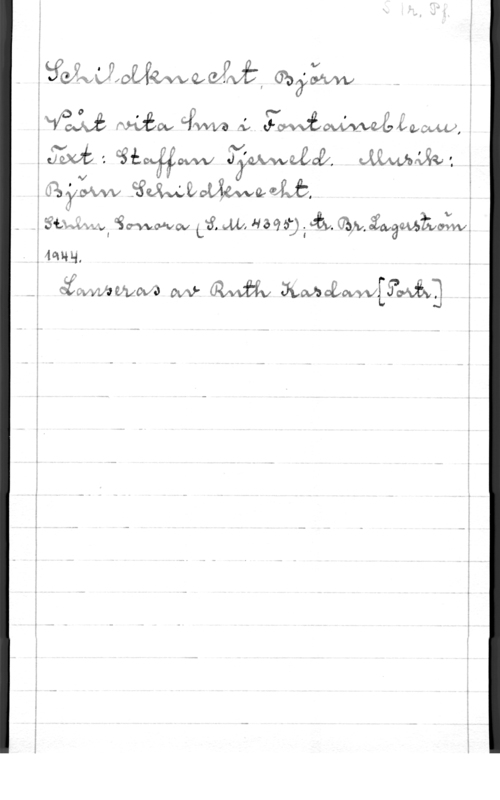 S tr, Pf.
Schildknecht, Björn
Vårt vita hus i Fontainebleau.
Text: Staffan Tjerneld. Musik:
Björn Schildknecht.
Sthlm, Sonora (S.M. 4395); tr. Br. Lagerström
1944.
Lanseras av Ruth Kasdan [Portr.]